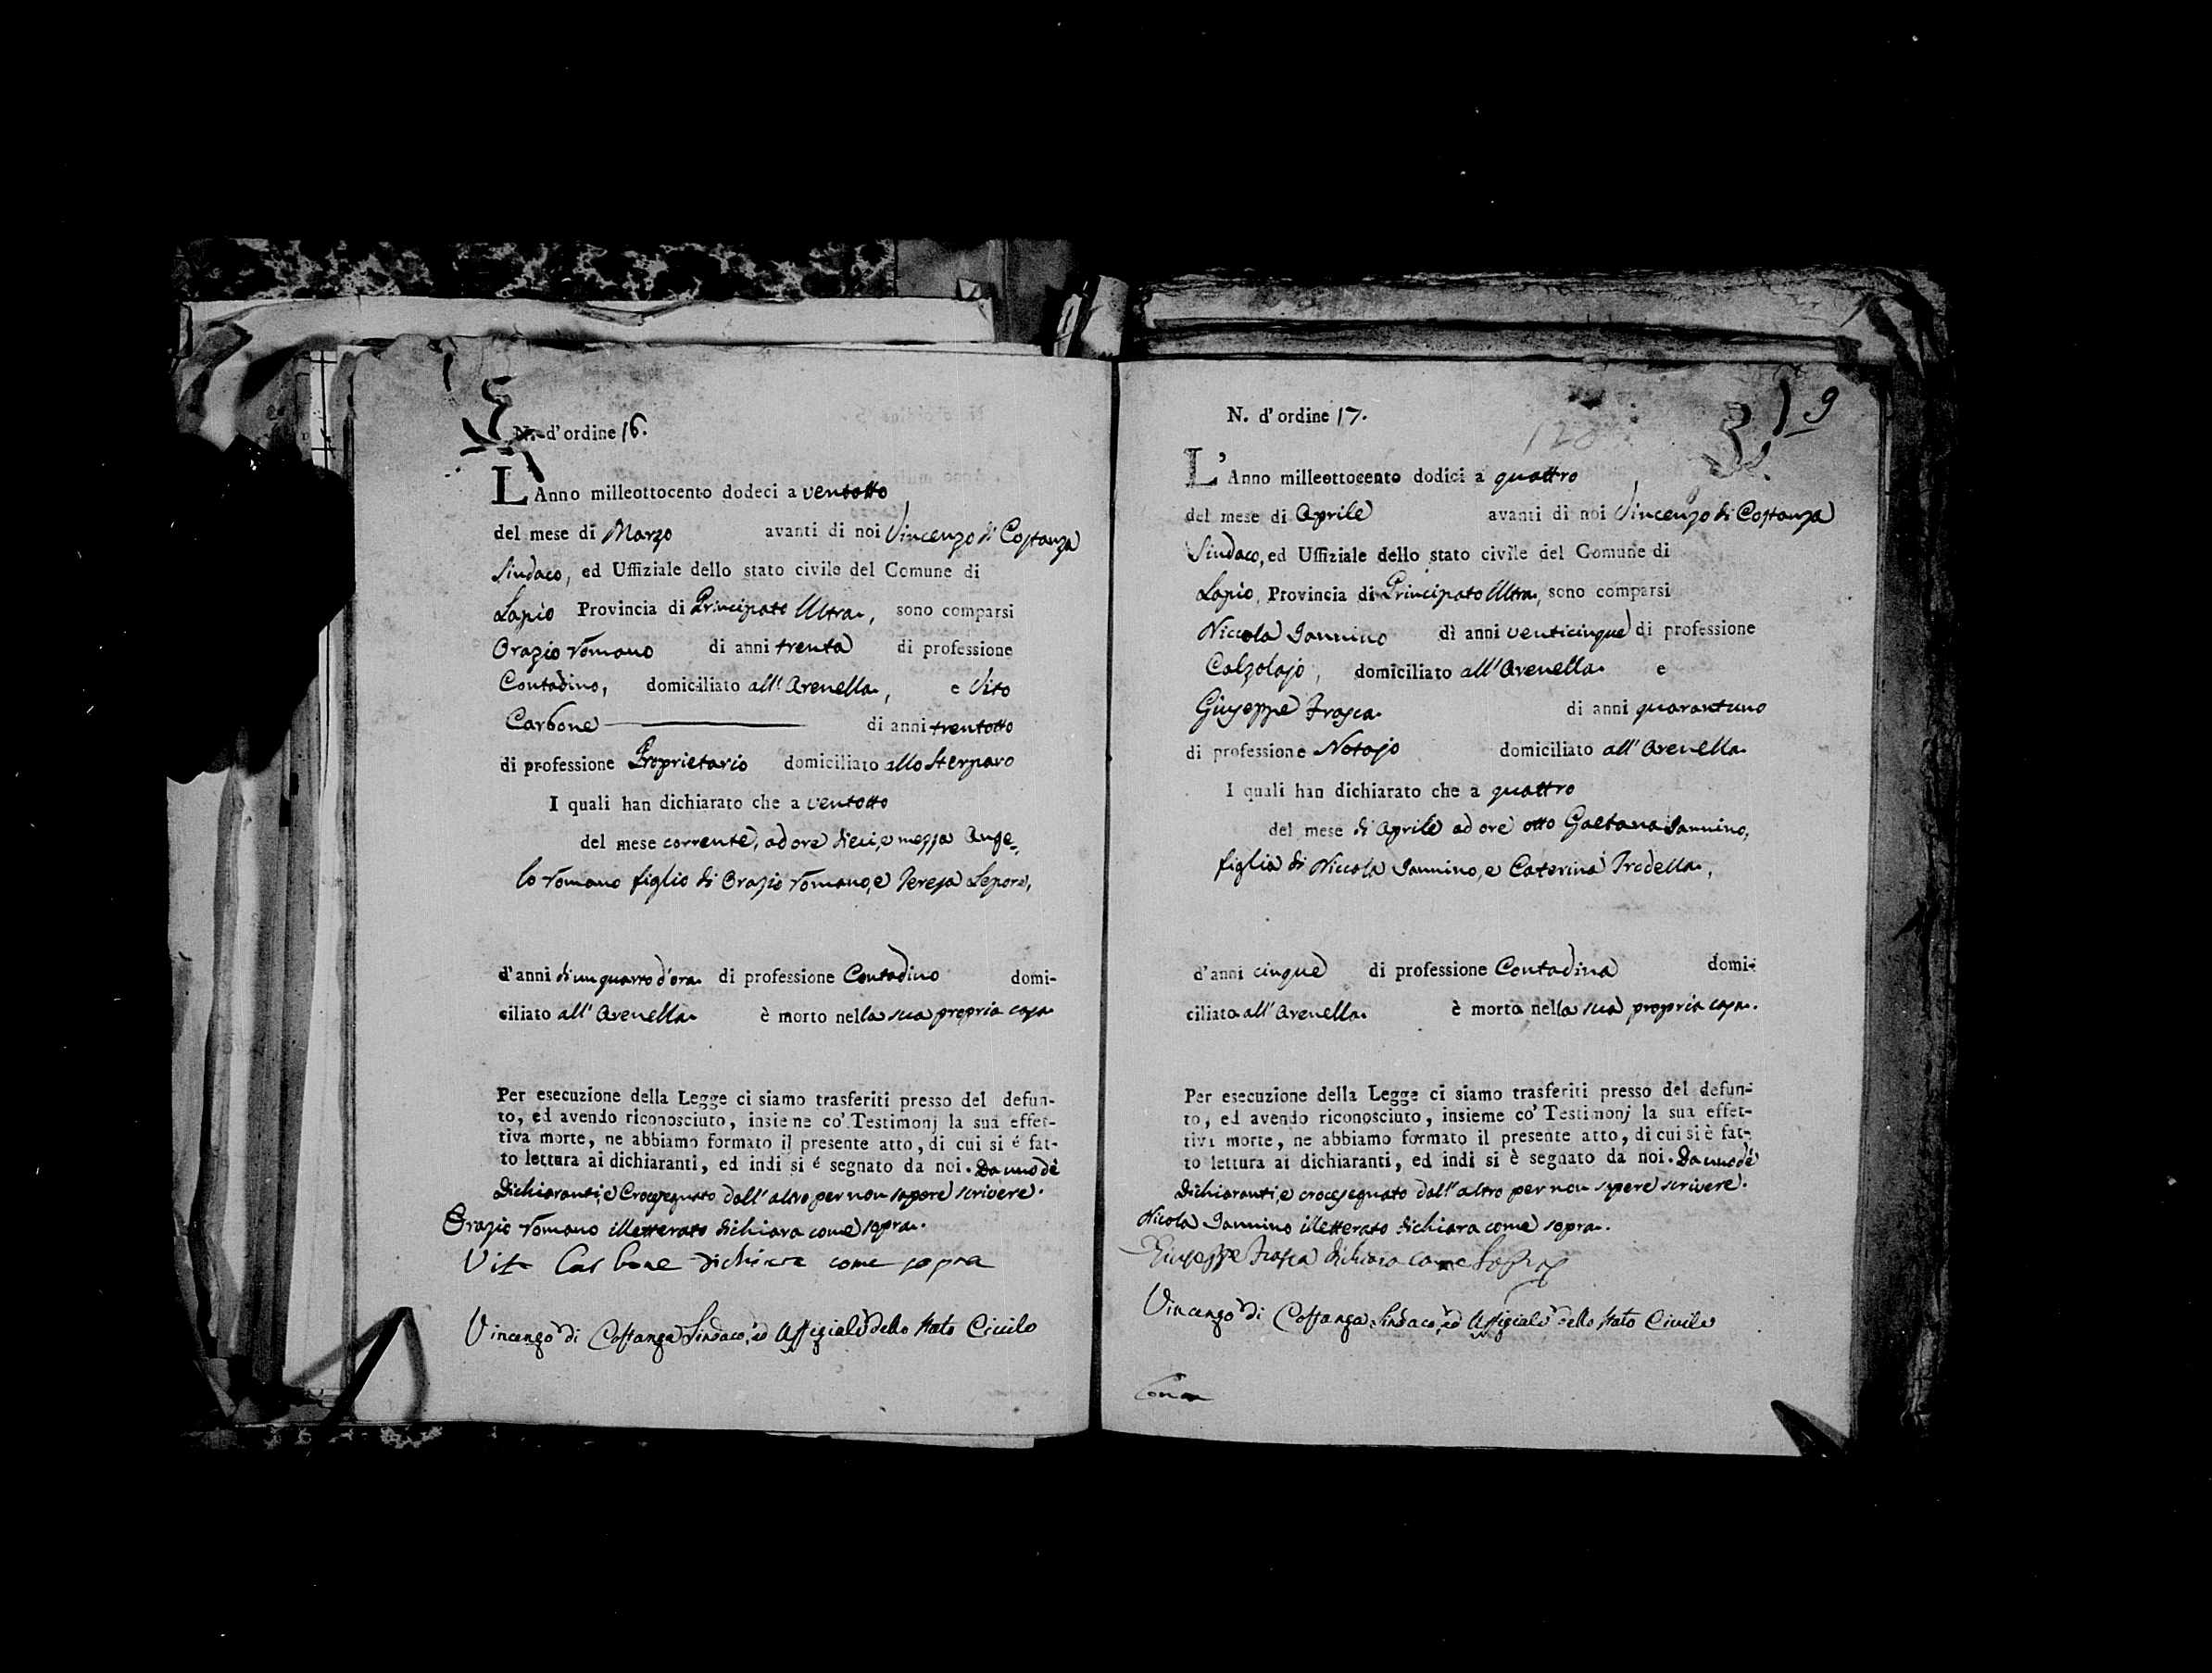 N. d'ordine 16.
L'Anno milleottocento dodeci a ventotto
del mese di Marzo avanti di noi Vincenzo di Costanza
Sindaco, ed Uffiziale dello stato civile del Comune di
Lapio Provincia di Principato Ultra, sono comparsi
Orazio Romano di anni trenta di professione
Contadino, domiciliato all'Arenella, e Vito
Carbone di anni trentotto
di professione Proprietario domiciliato allo Sterparo
I quali han dichiarato che a ventotto
del mese corrente, ad ore dieci, e mezza Ange=
lo Romano figlio di Orazio Romano, e Teresa Lepore,
d'anni di un quarto d'ora di professione Contadino domi-
ciliato all'Arenella è morto nella sua propria casa
Per esecuzione della Legge ci siamo trasferiti presso del defun-
to, ed avendo riconosciuto, insieme co' Testimonj la sua effet-
tiva morte, ne abbiamo formato il presente atto, di cui si é fat-
to lettura ai dichiaranti, ed indi si é segnato da noi. Da uno de'
dichiaranti, e crocesegnato dall'altro per non sapere scrivere.
Orazio Romano illetterato dichiara come sopra.
Vito Carbone dichiara come sopra
Vincenzo di Costanza Sindaco, ed Uffiziale dello Stato Civile
19
N. d'ordine 17.
120
L'Anno milleottocento dodici a quattro
del mese di Aprile avanti di noi Vincenzo di Costanza
Sindaco, ed Uffiziale dello stato civile del Comune di
Lapio, Provincia di Principato Ultra, sono comparsi
Niccola Iannino di anni venticinque di professione
Calzolajo, domiciliato all'Arenella e
Giuseppe Frasca di anni quarantuno
di professione Notajo domiciliato all'Arenella
I quali han dichiarato che a quattro
del mese di Aprile ad ore otto Gaetana Iannino,
figlia di Niccola Iannino, e Caterina Trodella,
d'anni cinque di professione Contadina domi-
ciliata all'Arenella è morta nella sua propria casa.
Per esecuzione della Legge ci siamo trasferiti presso del defun-
to, ed avendo riconosciuto, insieme co' Testimonj la sua effet-
tiva morte, ne abbiamo formato il presente atto, di cui si è fat-
to lettura ai dichiaranti, ed indi si è segnato da noi. Da uno de'
dichiaranti, e crocesegnato dall'altro per non sapere scrivere.
Nicola Iannino illetterato dichiara come sopra.
Giuseppe Frasca dichiara come Sopra
Vincenzo di Costanza Sindaco, ed Uffiziale dello Stato Civile